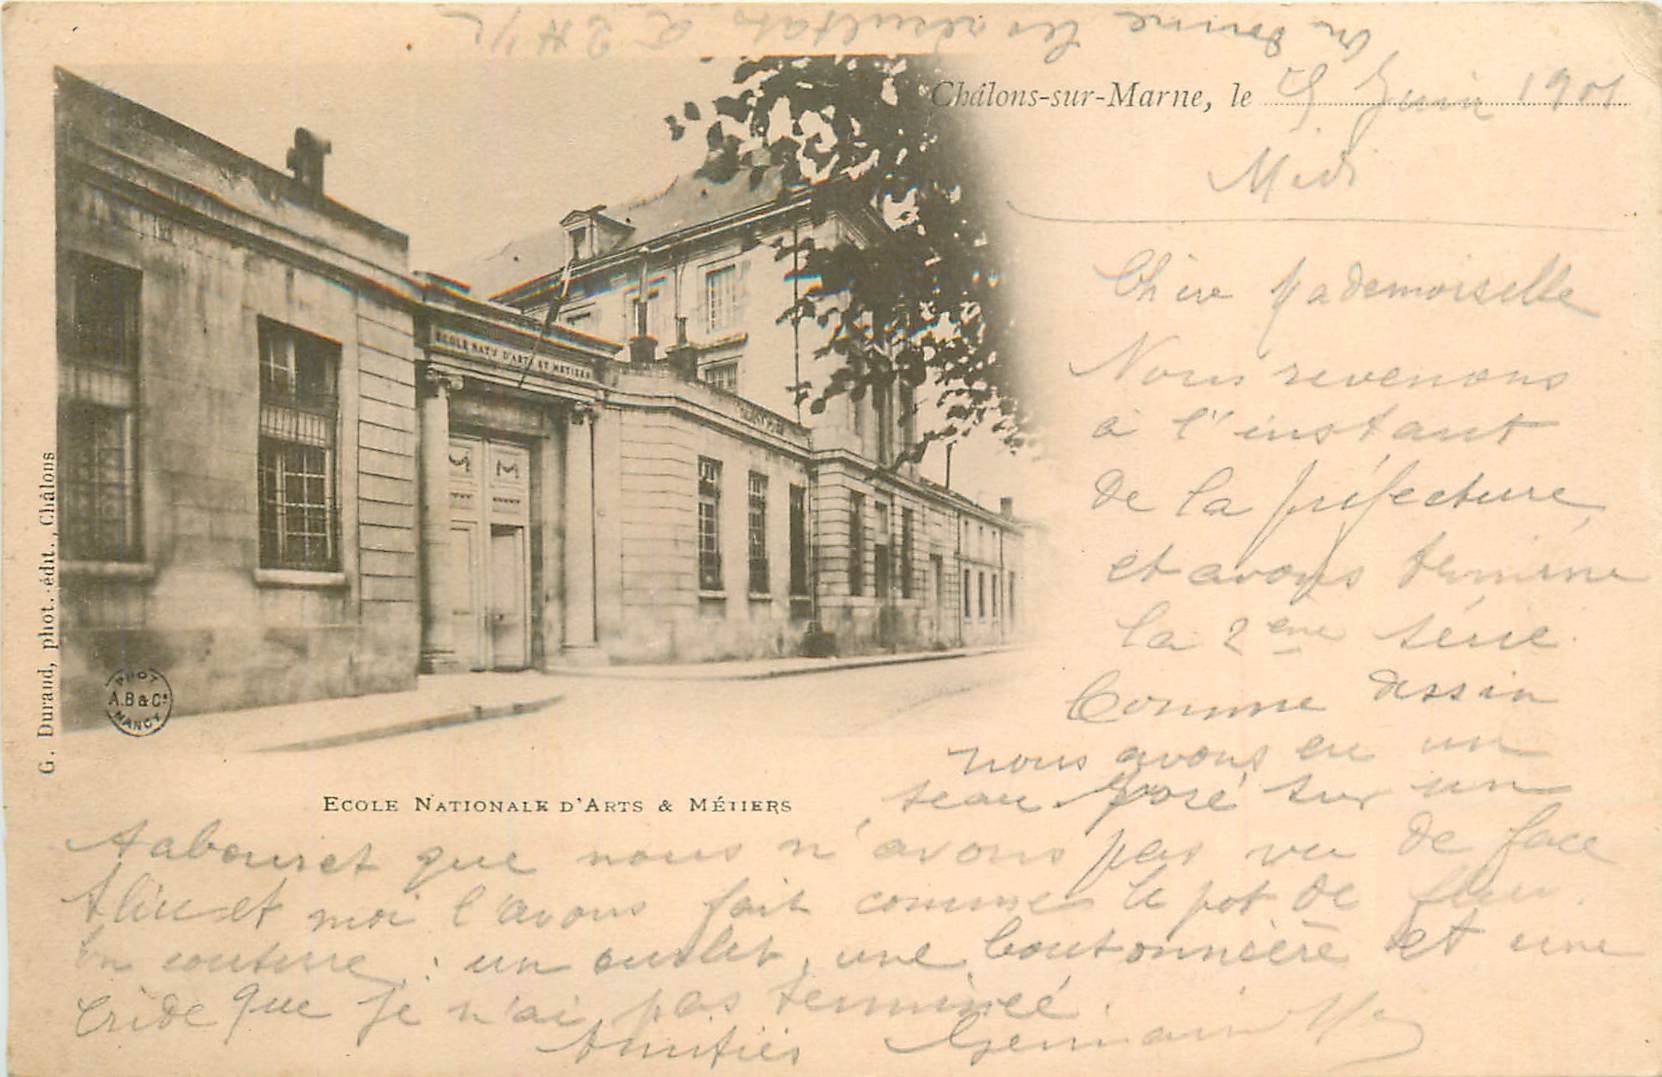 On donne les résultats à 2 H 1/2
Châlons-sur-Marne, le 25 Juin 1901
Midi
Chère Mademoiselle
Nous revenons
à l'instant
de la préfecture,
et avons terminé
la 2ème série.
Comme dessin
nous avons eu un
seau posé sur un
tabouret que nous n'avons pas vu de face
et moi l'avons fait comme le pot de fleur.
En couture : un ourlet, une boutonnière et une
bride que je n'ai pas terminée.
Amitiés Germaine
ECOLE NATle D'ARTS ET METIERS
ECOLE NATIONALE D'ARTS & MÉTIERS
G. Durand, phot.-édit., Châlons
PHOT
A.B & Cie
NANCY